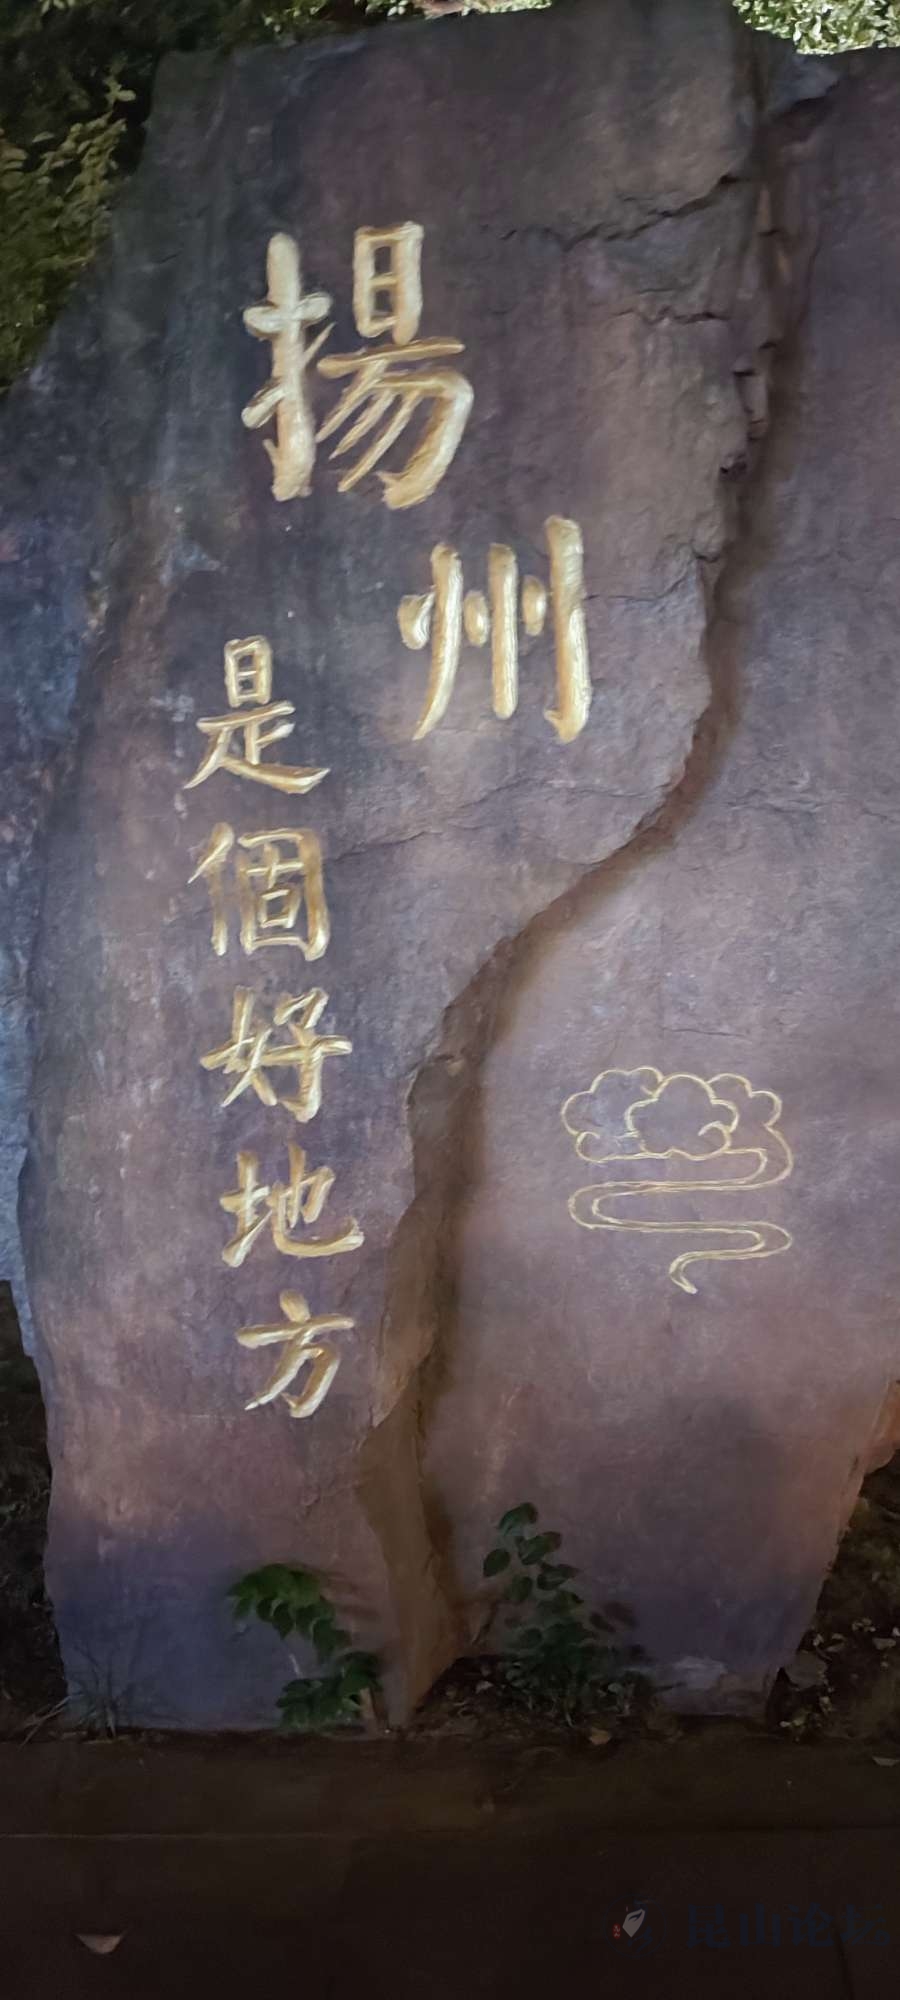 揚州
是個好地方
昆山论坛